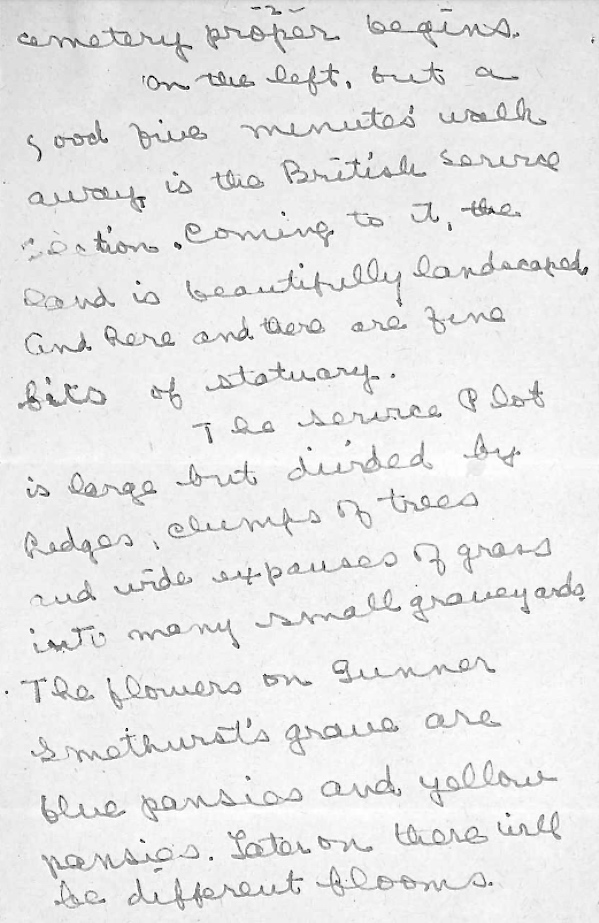 -2-
cemetery proper begins.
On the left, but a
good five minutes' walk
away, is the British Service
Section. Coming to it, the
land is beautifully landscaped
and here and there are fine
bits of statuary.
The Service Plot
is large but divided by
hedges, clumps of trees
and wide expanses of grass
into many small graveyards.
The flowers on Gunner
Smethurst's grave are
blue pansies and yellow
pansies. Later on there will
be different blooms.